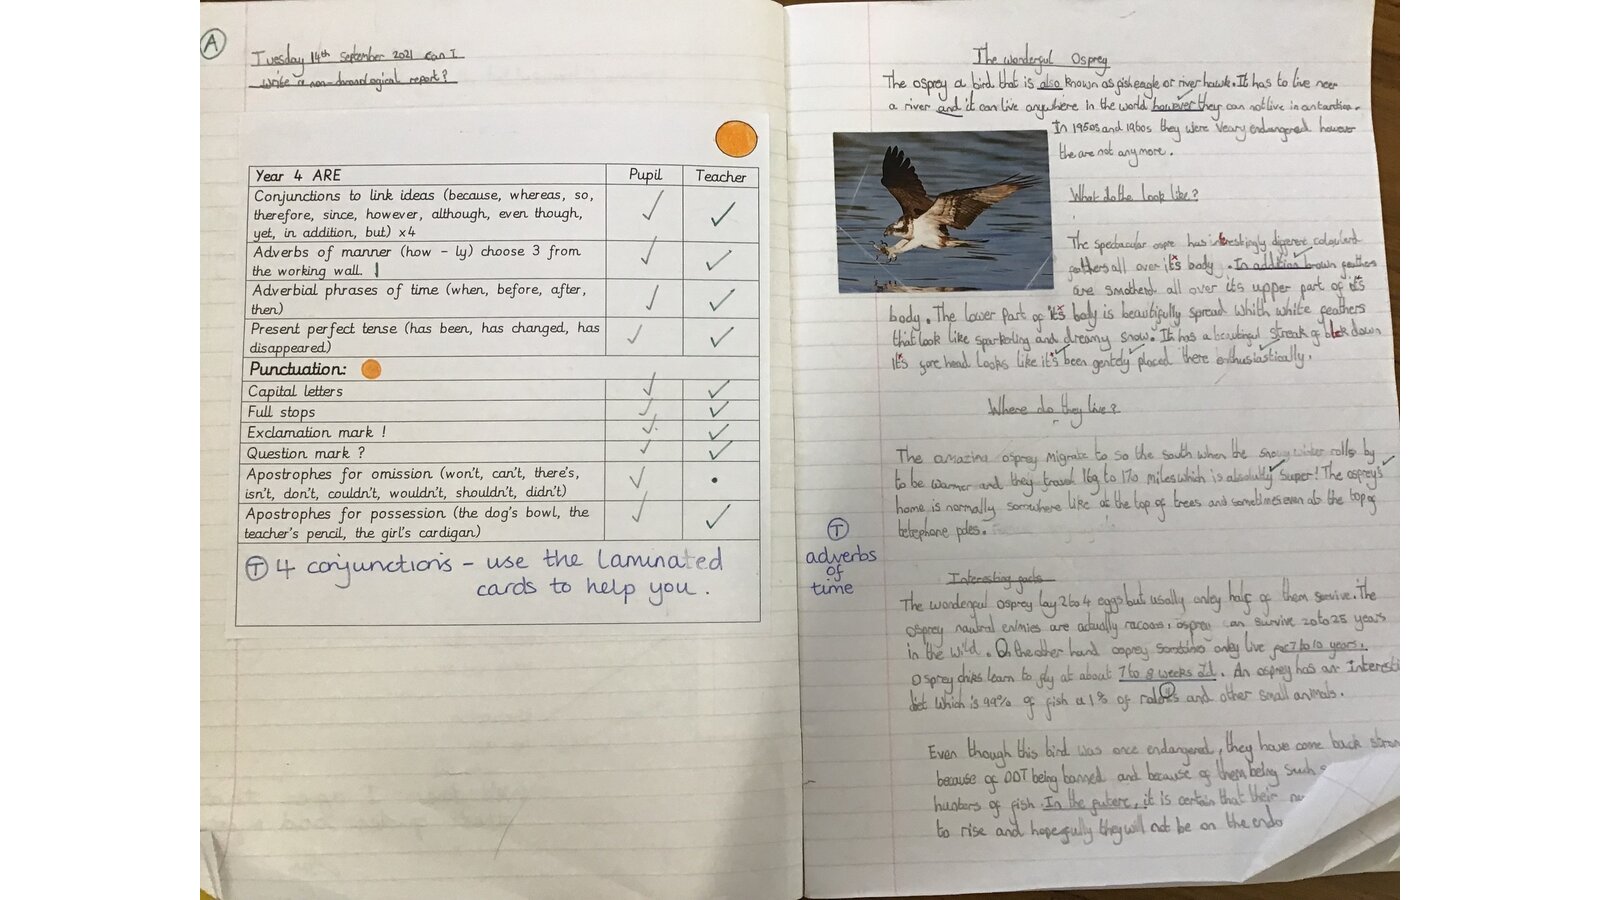 A
Tuesday 14th September 2021 Can I
write a non-chronological report?
Year 4 ARE Pupil Teacher
Conjunctions to link ideas (because, whereas, so,
therefore, since, however, although, even though,
yet, in addition, but) x4
Adverbs of manner (how - ly) choose 3 from
the working wall.
Adverbial phrases of time (when, before, after,
then)
Present perfect tense (has been, has changed, has
disappeared)
Punctuation:
Capital letters
Full stops
Exclamation mark !
Question mark ?
Apostrophes for omission (won't, can't, there's,
isn't, don't, couldn't, wouldn't, shouldn't, didn't)
Apostrophes for possession (the dog's bowl, the
teacher's pencil, the girl's cardigan)
T 4 conjunctions - use the laminated
cards to help you.
The wonderful Osprey
The osprey a bird that is also known as fish eagle or river hawk. It has to live near
a river and it can live anywhere in the world however they can not live in
In 1950s and 1960s they were veary endangered however
the are not any more.
What do the look like?
The spectacular ospre has interskingly different colouland
feathers all over it's body. In addition brown feathers
are smotherd all over it's upper part of it's
body. The lower part of it's body is beautifully spread whith white feathers
that look like sparkerling and dreamy snow. It has a beautiful streak of down
it's fore head looks like it's been gentely placed there enthusiastically.
Where do they live?
The amazing osprey migrate to so the south when the snowy winter rolls by
to be warmer and they travel 169 to 170 miles which is absolutly super! The osprey's
home is normally somwhere like at the top of trees and sometimes even ab the top of
telephone poles.
T
adverbs
of
time
Interesting facts
The wonderful osprey lay 2 to 4 eggs but usally onley half of them survive. The
osprey nautral enimies are actually racoons, osprey can survive 20 to 25 years
in the wild. On the other hand osprey sometimes only live for 7 to 10 years.
Osprey chiks learn to fly at about 7 to 8 weeks old. An osprey has an
diet which is 99% of fish a 1% of and other small animals.
Even though this bird was once endangered, they have come back
because of DDT being banned and because of them being such
hunters of fish. In the future, it is certain that their
to rise and hopefully they will not be on the